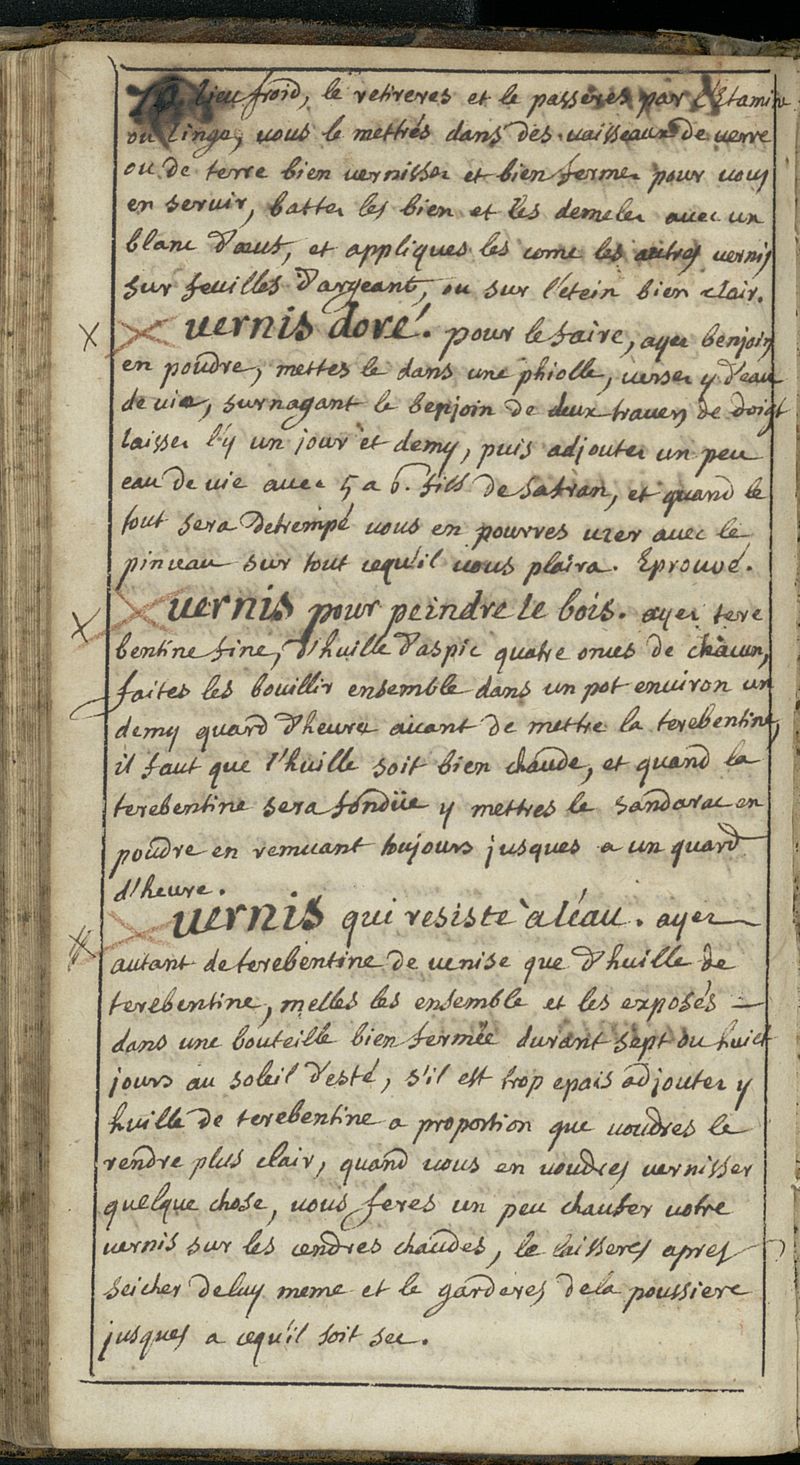 lieu froid, le retireres et le passeres par l'Etamine
ou linge, vous le mettrés dans des vaisseaux de verre
ou de terre bien vernisser et bien fermer pour vous
en servir, batter les bien et les demeler avec un
blanc d'œuf, et appliques les come les autres vernis
sur feuilles d'argeant, ou sur l'étein bien clair.
vernis doré. pour le faire, ayer benjoin
en poudre, mettes le dans une phiolle, verser y d'eau
de vie, surnagant le benjoin de deux travers de doigt
laisser l'y un jour et demy, puis adjouter un peu
eau de vie avec 5 a 6. fills de safran, et quand le
tout sera detrempé vous en pourres uzer avec le
pinceau sur tout cequ'il vous plaira. Eprouvé.
vernis pour peindre le bois. ayer tere
bentine fine, d'huille d'aspic quatre onces de chacun,
faites les bouillir ensemble dans un pot environ un
demy quard d'heure avant de mettre la terebentine,
il faut que l'huille soit bien chaude, et quand la
terebentine sera fondüe y mettres le sandarac en
poudre en remuant toujours jusques a un quard
d'heure.
vernis qui resiste à léau. ayer
autant de terebentine de venise que d'huille de
terebentine, melles les ensemble et les exposés
dans une bouteille bien fermée durant sept ou huict
jours au soleil d'esté, s'il est trop epais adjouter y
huille de terebentine a proportion que voudres le
rendre plus clair, quand vous en voudres vernisser
quelque chose, vous feres un peu chaufer votre
vernis sur les cendres chaudes, le laisseres apres
seicher deluy meme et le garderes dela poussiere
jusques a cequ'il soit sec.